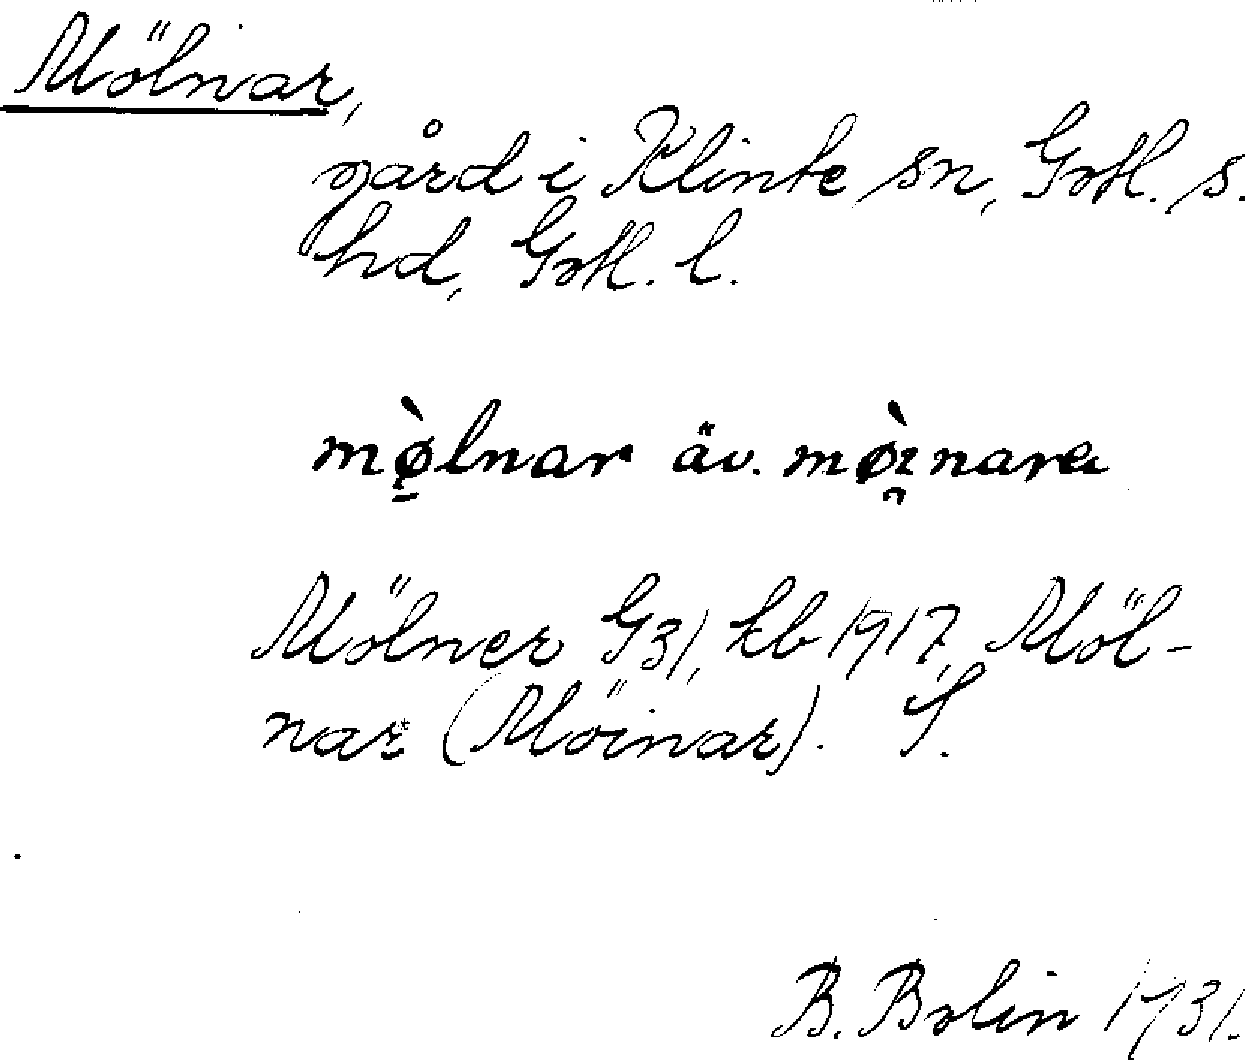 Mölnar,
gård i Klinte sn, Gotl. s.
hd, Gotl. l.
mø̀lnar äv. mø̀ɪnara
Mölner G31, kb 1917, Möl-
nar (Möinar). S.
B. Bolin 1931.